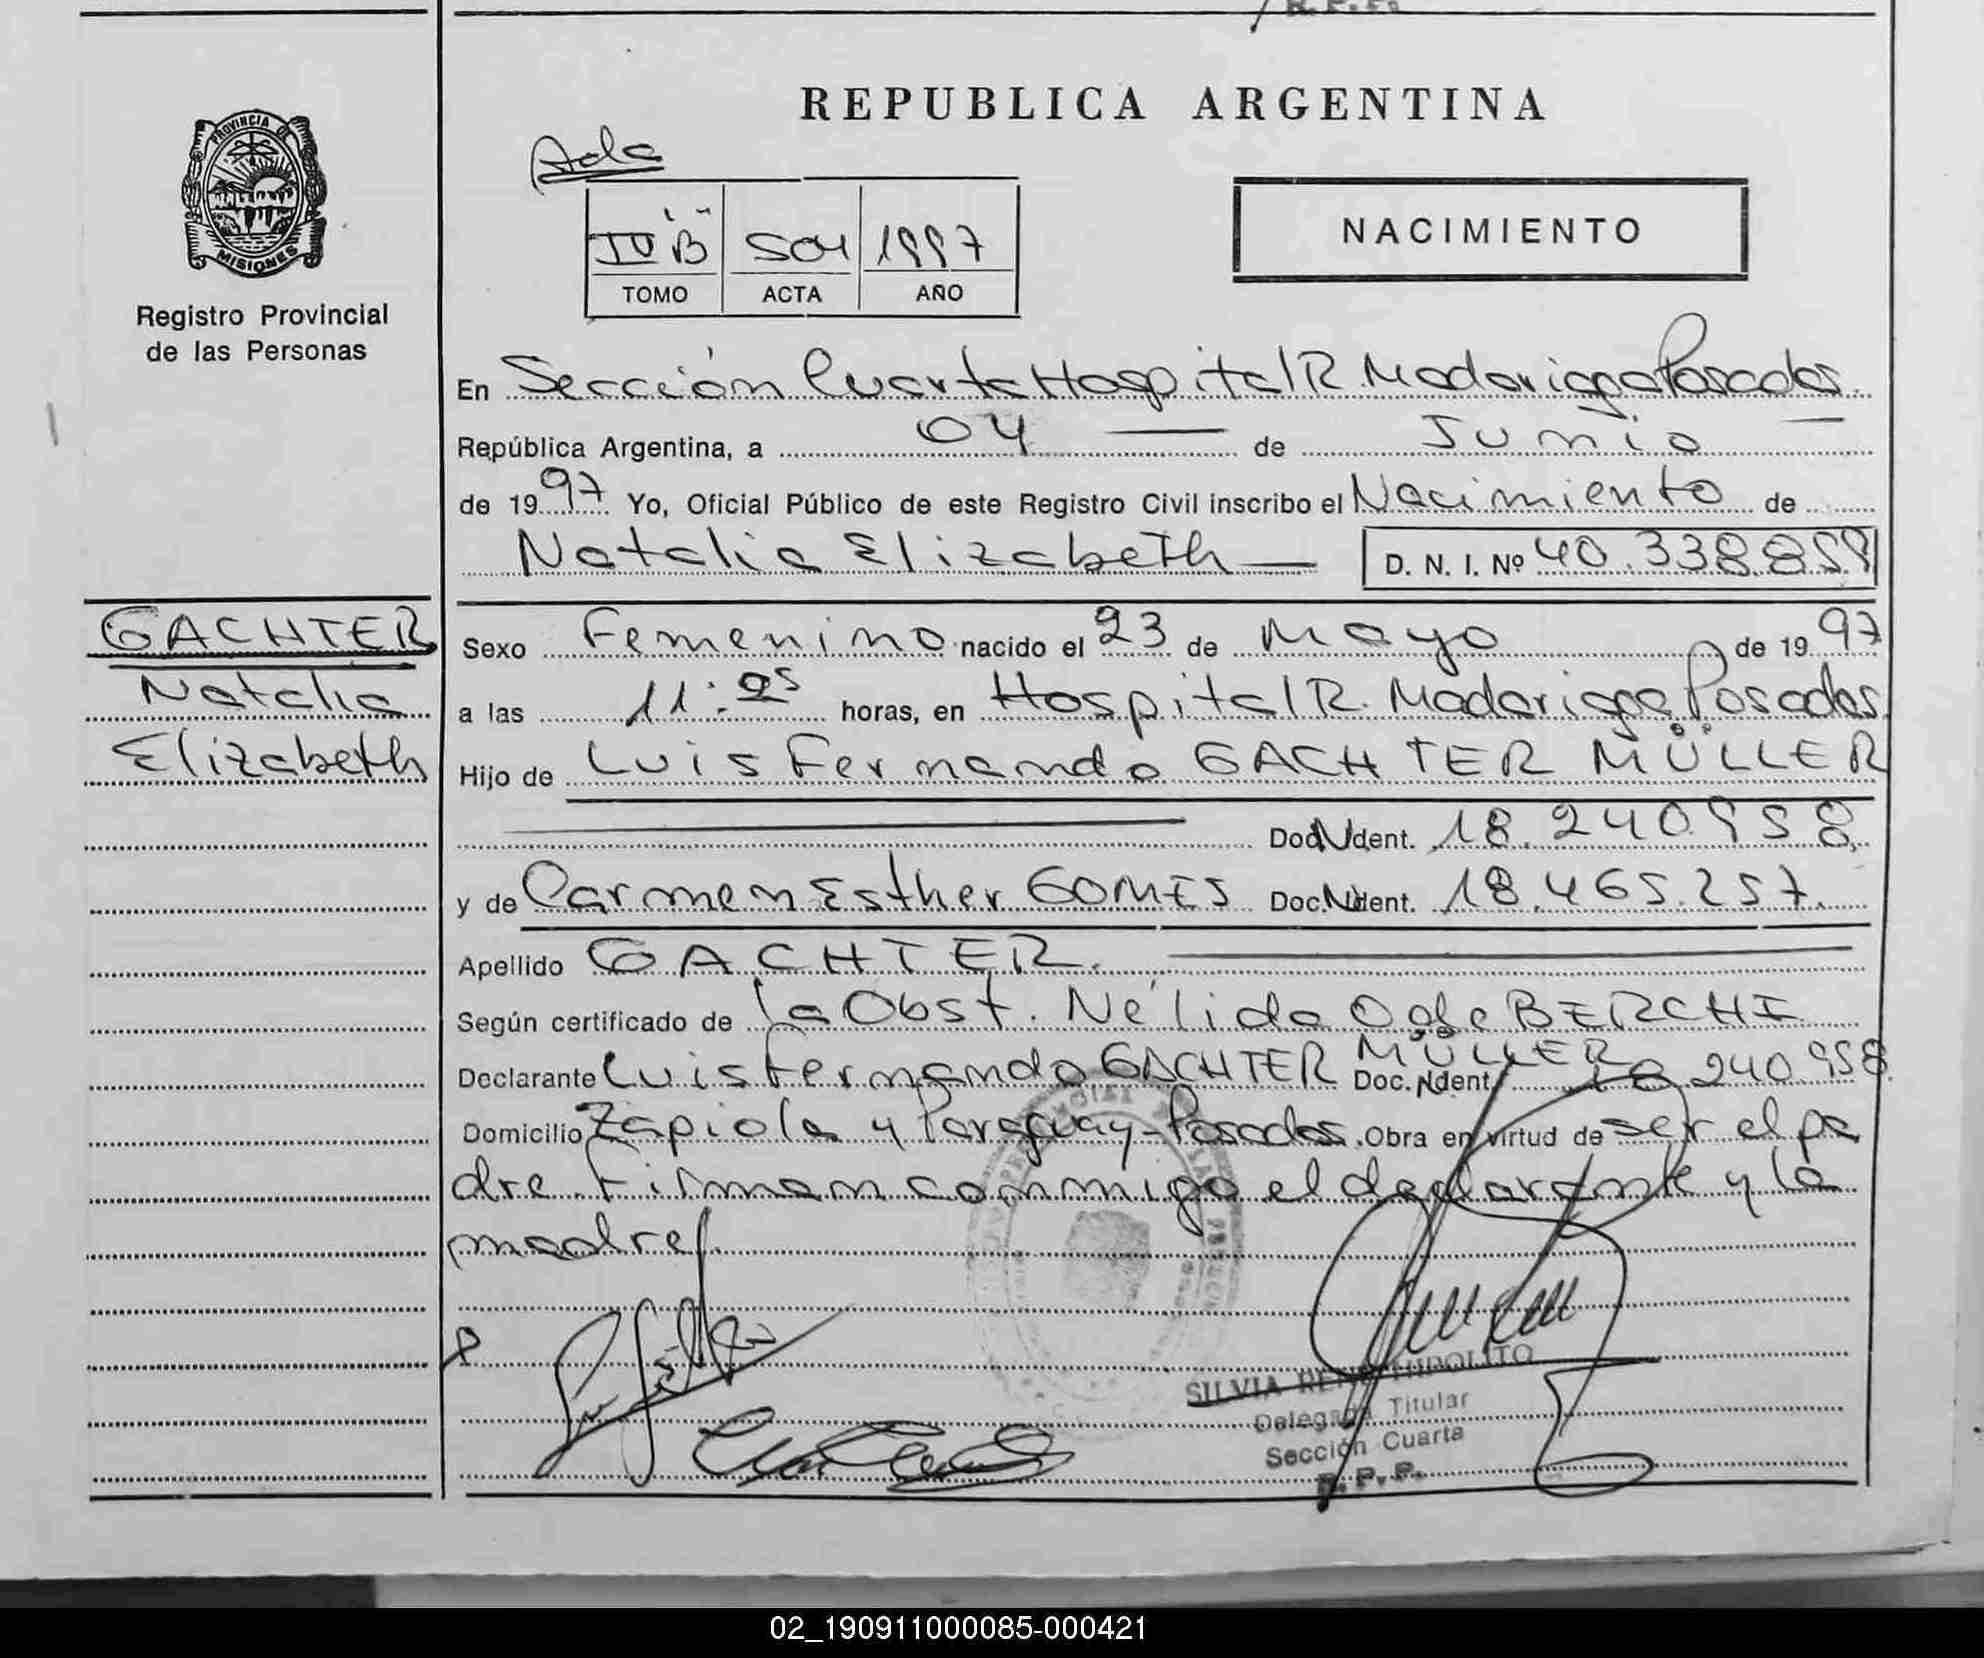 R.P.P.
REPUBLICA ARGENTINA
PROVINCIA DE
MISIONES
Registro Provincial
de las Personas
IV "B" 504 1997
TOMO ACTA AÑO
NACIMIENTO
En Sección Cuarta Hospital R. Madariaga Posadas.
República Argentina, a 04 — de Junio
de 1997 Yo, Oficial Público de este Registro Civil inscribo el Nacimiento de
Natalia Elizabeth — D. N. I. Nº 40.338.859
GACHTER
Natalia
Elizabeth
Sexo Femenino nacido el 23 de Mayo de 1997
a las 11:25 horas, en Hospital R. Madariaga Posadas.
Hijo de Luis Fernando GACHTER MÜLLER
Doc. Ident. 18.240.958.
y de Carmen Esther GOMES Doc. Ident. 18.465.257.
Apellido GACHTER.
Según certificado de la Obst. Nélida Olga BERCHI
Declarante Luis Fernando GACHTER MÜLLER Doc. Ident. 18.240.958.
Domicilio Zapiola y Paraguay-Posadas. Obra en virtud de ser el pa
dre. Firman conmigo el declarante y la
madre.
SILVIA RENE HIPOLITO
Delegada Titular
Sección Cuarta
R.P.P.
02_190911000085-000421